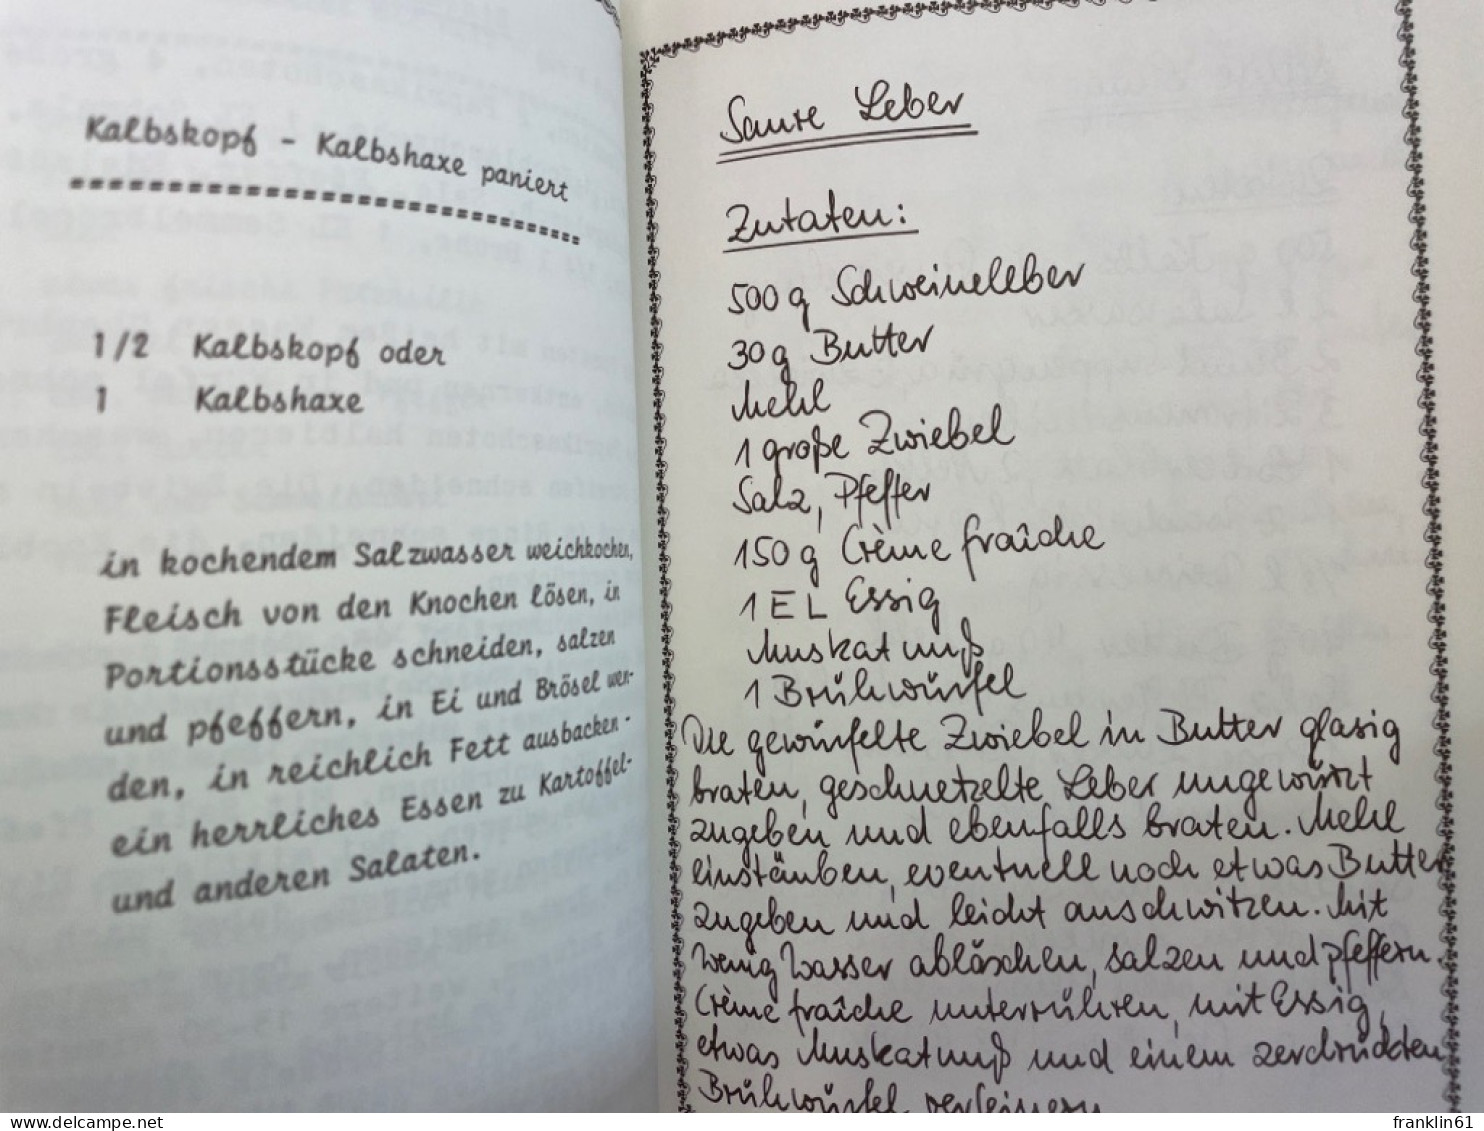 Kalbskopf - Kalbshaxe paniert
1/2 Kalbskopf oder
1 Kalbshaxe
in kochendem Salzwasser weichkochen,
Fleisch von den Knochen lösen, in
Portionsstücke schneiden, salzen
und pfeffern, in Ei und Brösel wen-
den, in reichlich Fett ausbacken -
ein herrliches Essen zu Kartoffel-
und anderen Salaten.
Saure Leber
Zutaten:
500 g Schweineleber
30 g Butter
Mehl
1 große Zwiebel
Salz, Pfeffer
150 g Crème fraîche
1 EL Essig
Muskatnuß
1 Brühwürfel
Die gewürfelte Zwiebel in Butter glasig
braten, geschnetzelte Leber ungewürzt
zugeben und ebenfalls braten. Mehl
einstäuben, eventuell noch etwas Butter
zugeben und leicht anschwitzen. Mit
wenig Wasser ablöschen, salzen und pfeffern.
Crème fraîche unterrühren, mit Essig,
etwas Muskatnuß und einem zerdrückten
Brühwürfel verfeinern
www.delcampe.net
franklin61